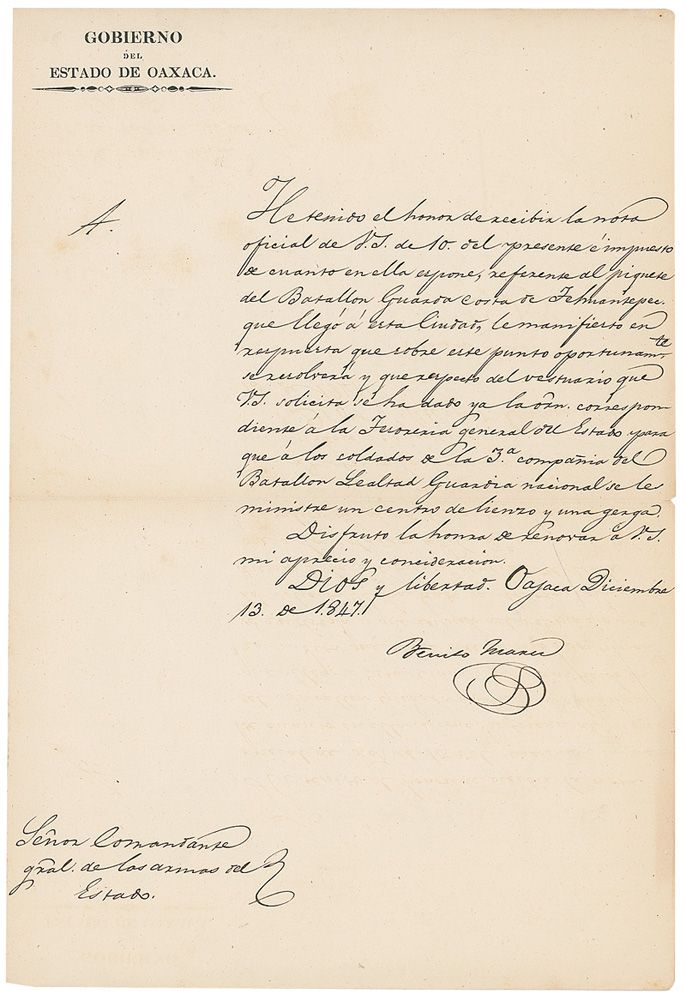 GOBIERNO
DEL
ESTADO DE OAXACA.
A.
He tenido el honor de recibir la nota
oficial de V.S. de 10. del presente é impuesto
de cuanto en ella espone, referente al piquete
del Batallon Guarda Costa de Tehuantepec.
que llegó á esta Ciudad, le manifiesto en
respuesta que sobre este punto oportunamte
se resolverá y que respecto del vestuario que
V.S. solicita se ha dado ya la órn. correspon-
diente á la Tesoreria general del Estado para
que á los soldados de la 3.a compañia del
Batallon Lealtad Guardia nacional se les
ministre un centro de lienzo y una gerga.
Disfruto la honra de renovar á V.S.
mi aprecio y concideracion.
DIOS y libertad. Oajaca Diciembre
13. de 1.847.
Benito Juarez
Señor Comandante
gral. de las armas del
Estado.